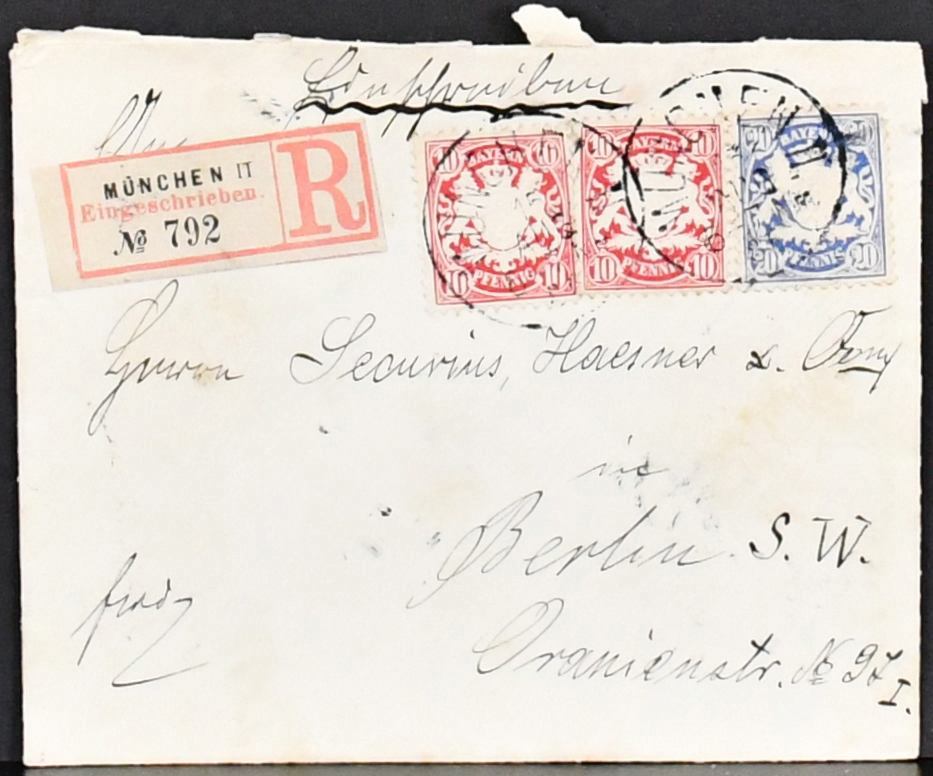 Einschreiben
An
MÜNCHEN II
Eingeschrieben.
№ 792
R
10 BAYERN 10
10 PFENNIG 10
10 BAYERN 10
10 PFENNIG 10
20 BAYERN 20
20 PFENNIG 20
Herrn Securius, Haesner & Comp
in
Berlin S. W.
Oranienstr. № 97 I.